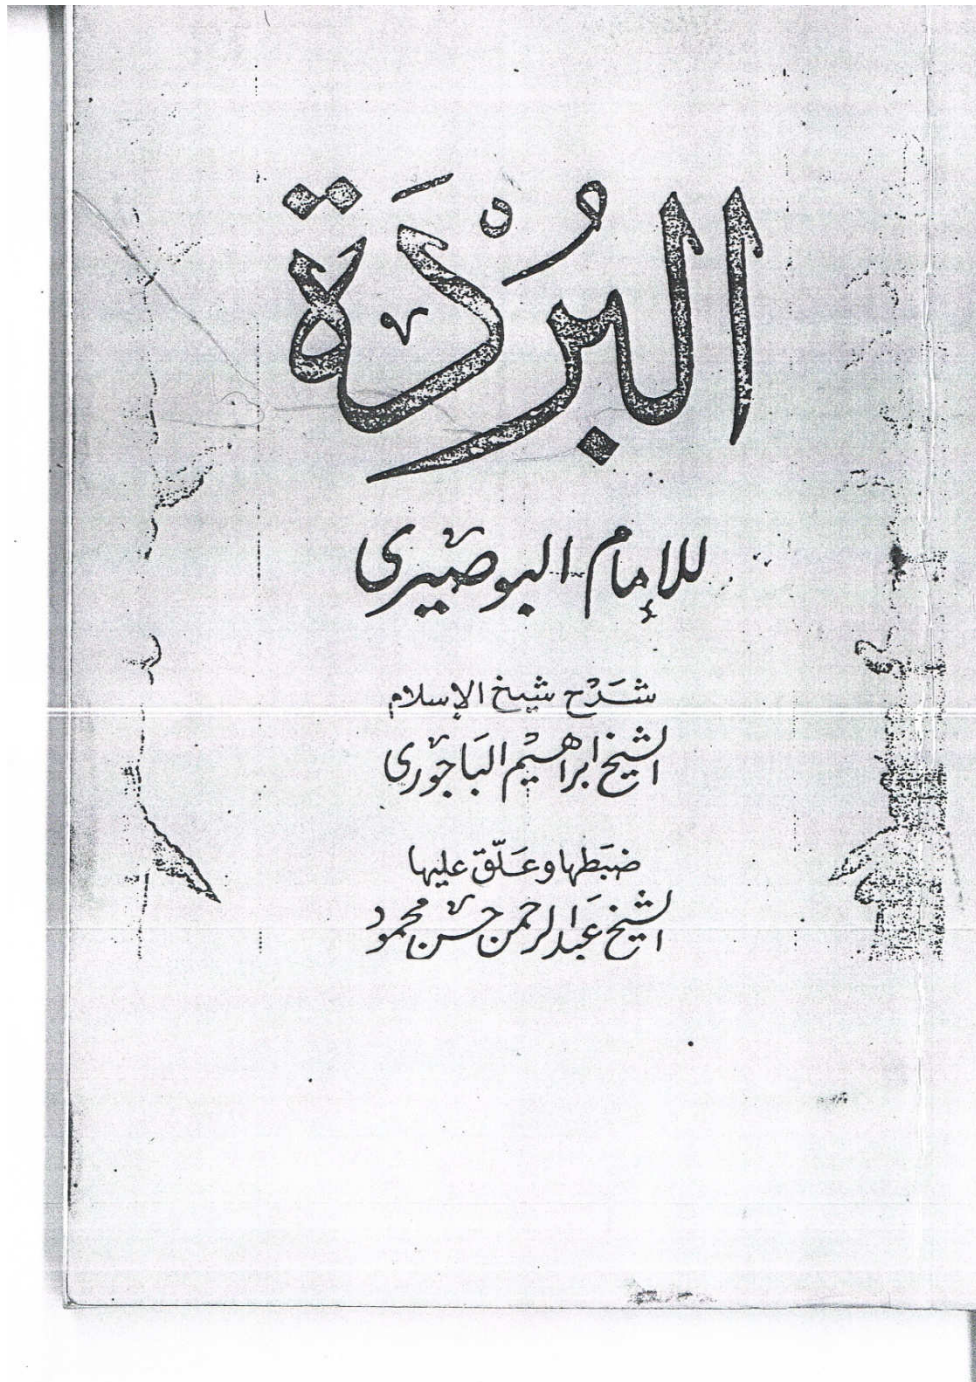 البُرْدَة
للإمام البوصيرى
شَرْح شيخ الإسلام
الشيخ ابراهيْم البَاجورى
ضبَطها وعَلّق عليها
الشيخ عَبد الرحمن حسن محمود